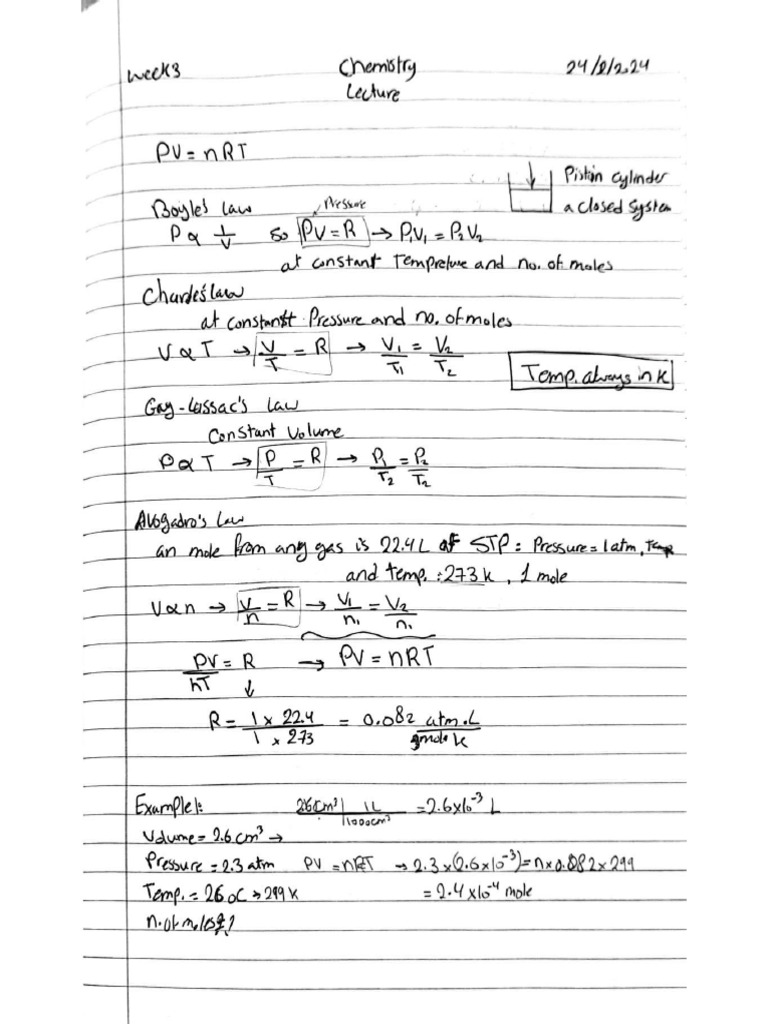 Week3 Chemistry 24/8/2024
Lecture
PV = nRT
Piston cylinder
a closed system
Boyle's law Pressure
P ∝ 1/V so PV = R → P₁V₁ = P₂V₂
at constant Tempreture and no. of moles
Charles's law
at constant Pressure and no. of moles
V ∝ T → V/T = R → V₁/T₁ = V₂/T₂
Temp. always in K
Gay-Lussac's Law
Constant Volume
P ∝ T → P/T = R → P₁/T₂ = P₂/T₂
Avogadro's Law
an mole from any gas is 22.4L at STP: Pressure = 1 atm, Temp
and temp. : 273 k , 1 mole
V ∝ n → V/n = R → V₁/n₁ = V₂/n₁
PV/nT = R → PV = nRT
R = 1 x 22.4 / 1 x 273 = 0.082 atm.L / mole k
Example 1: 2.6 cm³ | 1L / 1000cm³ = 2.6x10⁻³ L
Volume = 2.6 cm³ →
Pressure = 2.3 atm PV = nRT → 2.3 x (2.6 x 10⁻³) = n x 0.082 x 299
Temp. = 26 oC → 299 K = 2.4 x 10⁻⁴ mole
n. of moles?